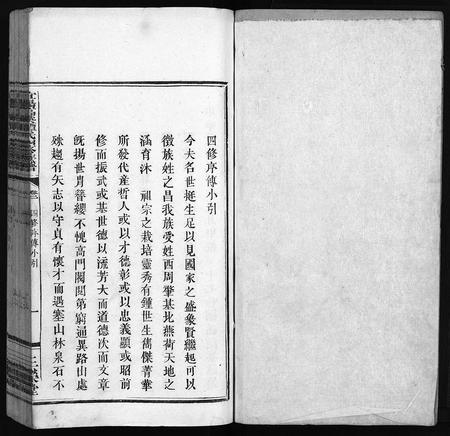 四修序傳小引
今夫名世挺生足以見國家之盛象賢繼起可以
徵族姓之昌我族受姓西周肇基北燕荷天地之
涵育沐　祖宗之栽培靈秀有鍾世生儁傑菁華
所發代產哲人或以才德彰或以忠義顯或昭前
修而振武或基世德以流芳大而道德次而文章
旣揚世青簪纓不愧高門閥閱第窮通異路山處
殊趨有矢志以守貞有懷才而遇塞山林泉石不
四修序傳小引
一
三
堂